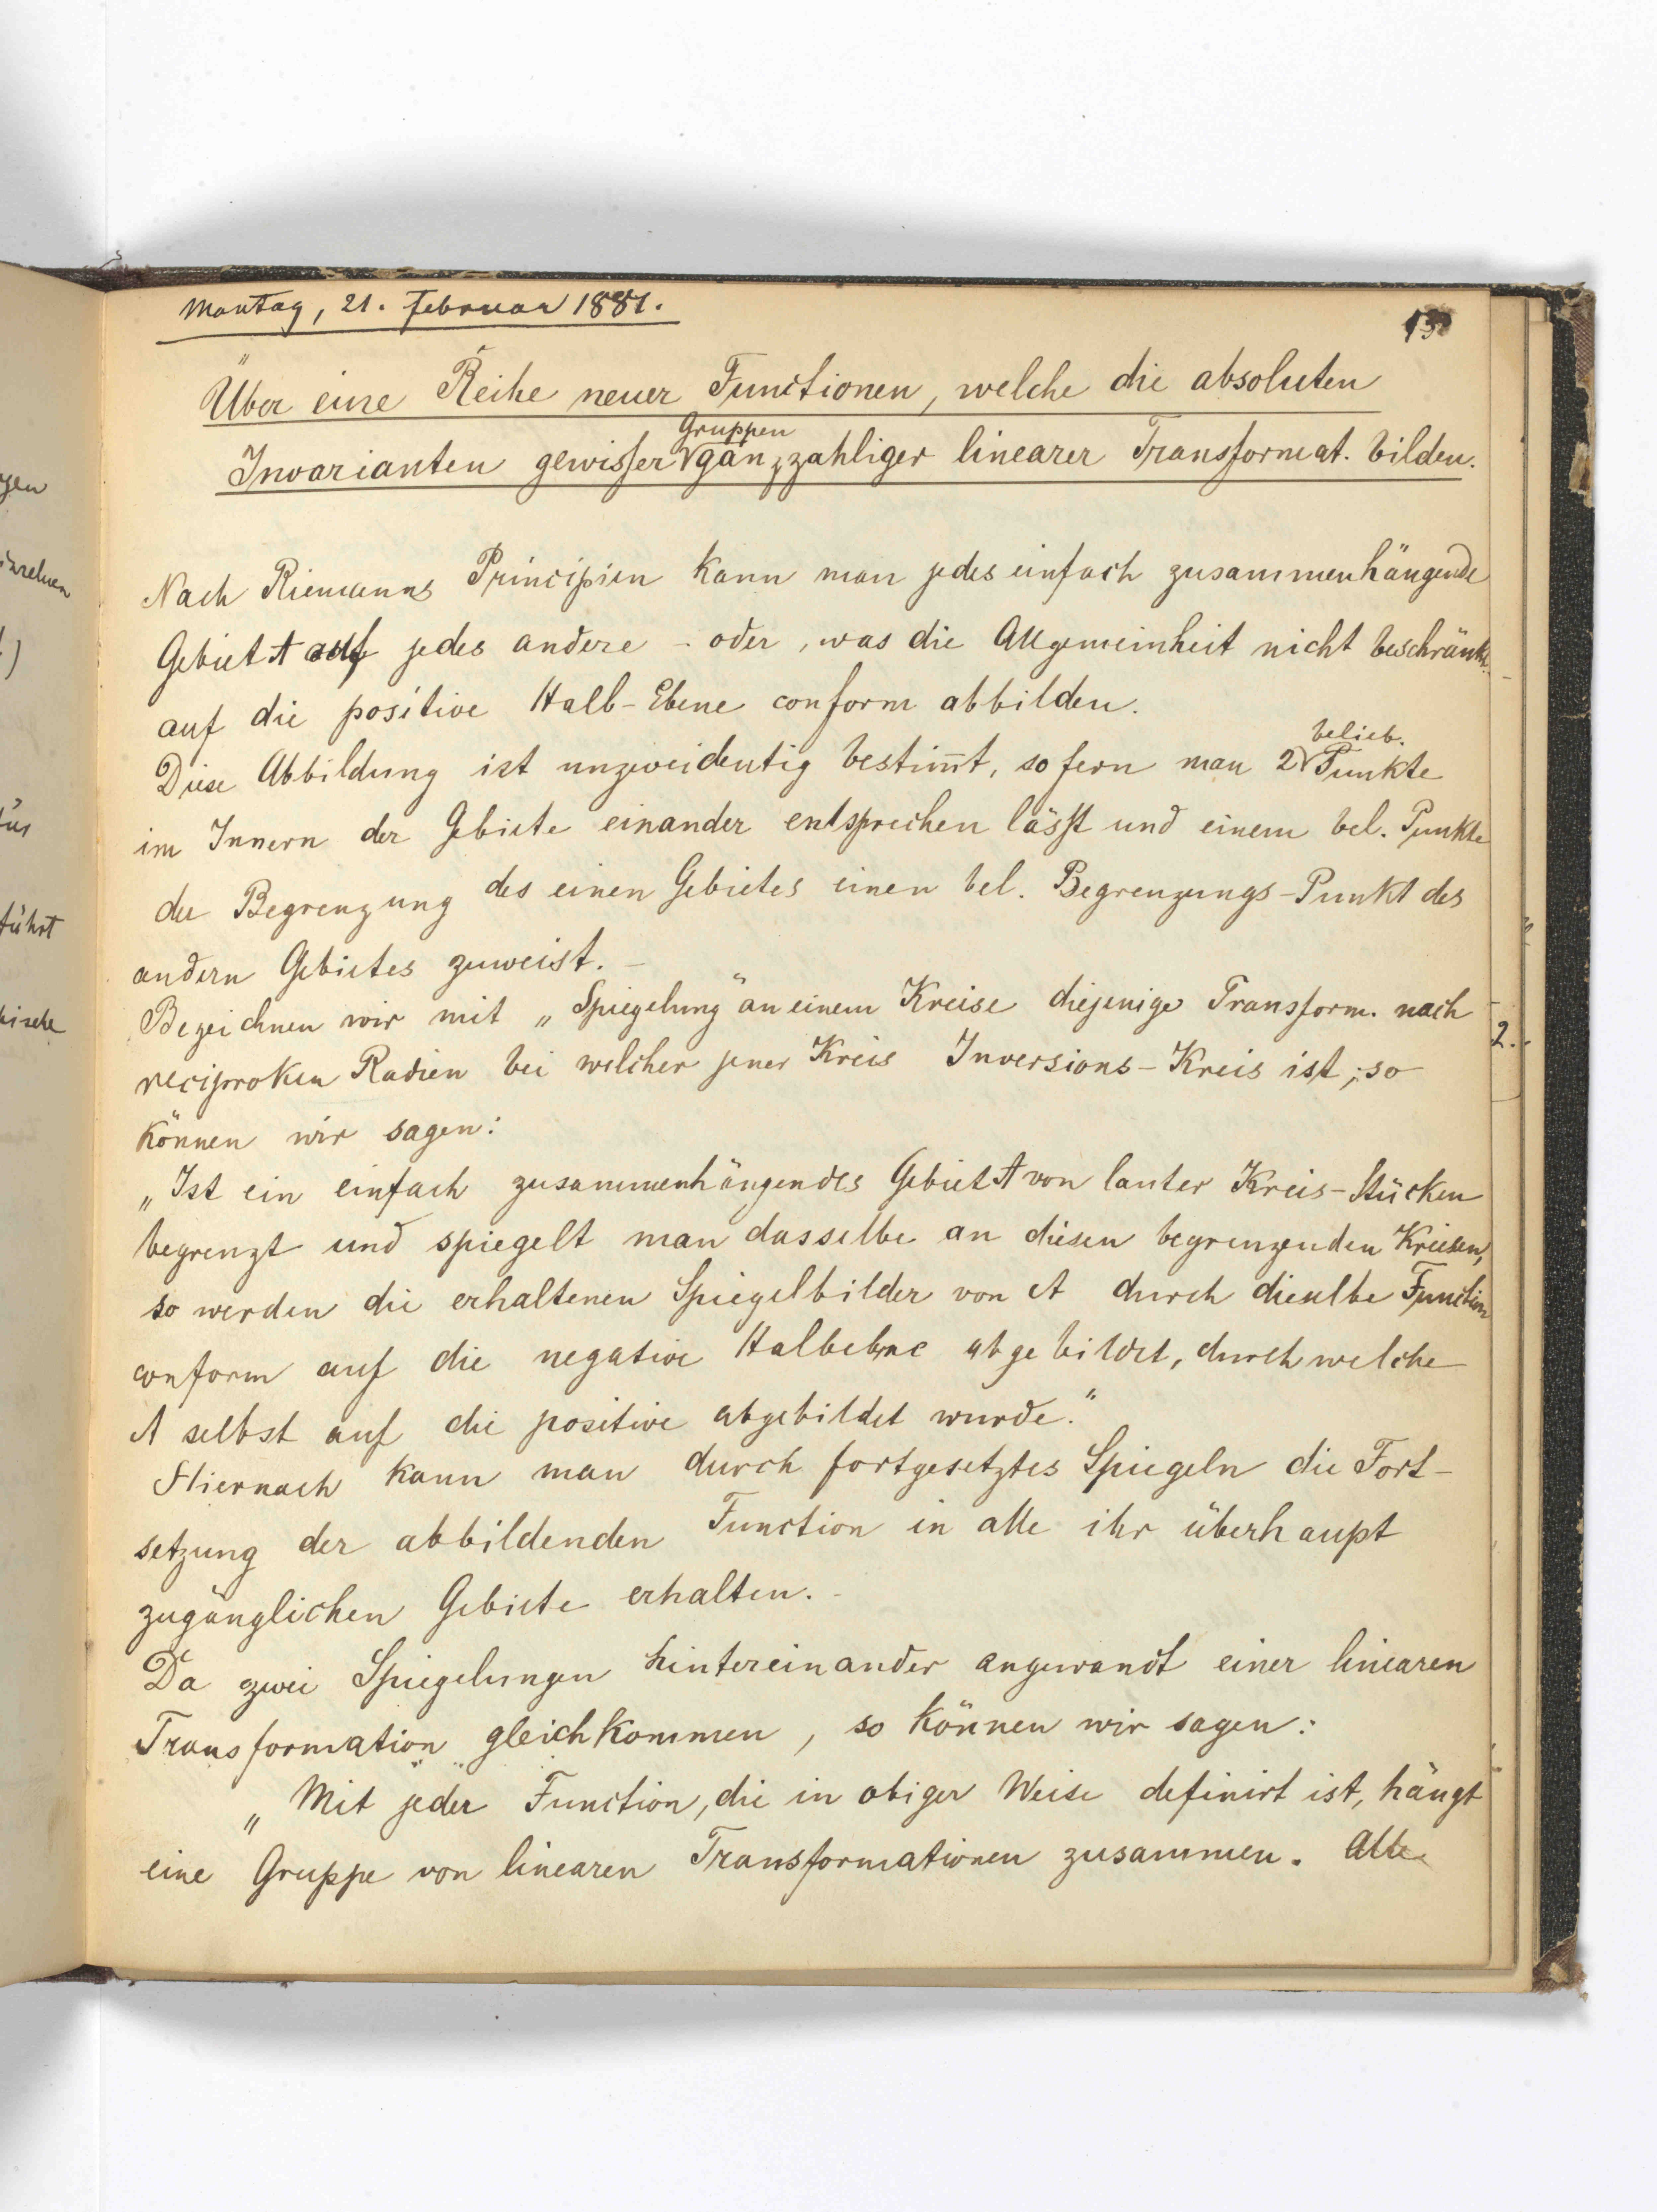 Montag, 21. Februar 1881.
Über eine Reihe neuer Functionen, welche die absoluten
Gruppen
Invarianten gewisser ganzzahliger linearer Transformat. bilden.
Nach Riemanns Principien kann man jedes einfach zusammenhängende
Gebiet A auf jedes andere - oder, was die Allgemeinheit nicht beschränkt
auf die positive Halb-Ebene conform abbilden.
belieb.
Diese Abbildung ist unzweideutig bestim̅t, sofern man 2 Punkte
im Innern der Gebiete einander entsprechen lässt und einem bel. Punkte
der Begrenzung des einen Gebietes einen bel. Begrenzungs-Punkt des
andern Gebietes zuweist. -
Bezeichnen wir mit „Spiegelung" an einem Kreise diejenige Transform. nach
reciproken Radien bei welcher jener Kreis Inversions-Kreis ist, so
können wir sagen:
„Ist ein einfach zusammenhängendes Gebiet A von lauter Kreis-Stücken
begrenzt und spiegelt man dasselbe an diesen begrenzenden Kreisen,
so werden die erhaltenen Spiegelbilder von A durch dieselbe Function
conform auf die negative Halbebene abgebildet, durch welche
A selbst auf die positive abgebildet wurde."
Hiernach kann man durch fortgesetztes Spiegeln die Fort-
setzung der abbildenden Function in alle ihr überhaupt
zugänglichen Gebiete erhalten. -
Da zwei Spiegelungen hintereinander angewandt einer linearen
Transformation gleichkommen, so können wir sagen:
„Mit jeder Function, die in obiger Weise definirt ist, hängt
eine Gruppe von linearen Transformationen zusammen. Alle
gen
führt
2.